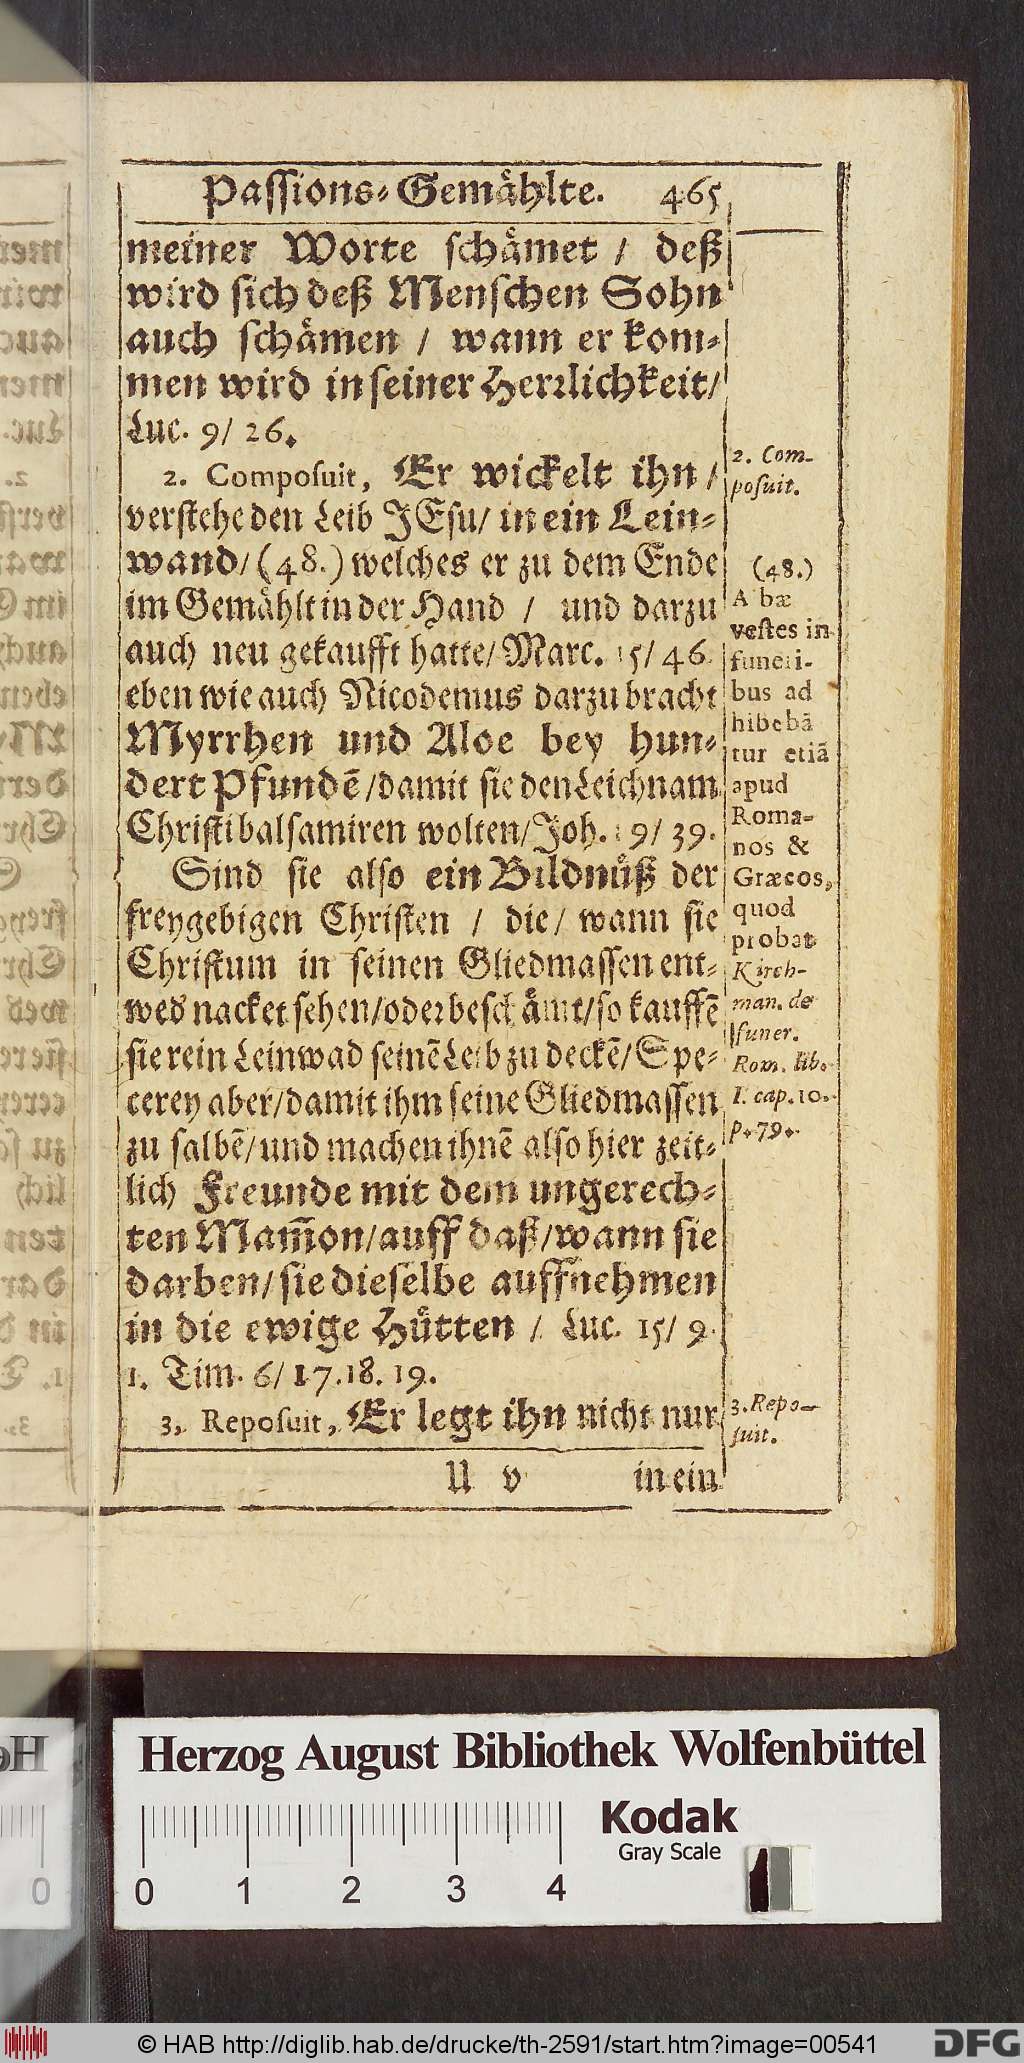 Passions-Gemählte. 465
meiner Worte schämet / deß
wird sich deß Menschen Sohn
auch schämen / wann er kom-
men wird in seiner Herrlichkeit/
Luc. 9/ 26.
2. Composuit, Er wickelt ihn /
verstehe den Leib JEsu/ in ein Lein-
wand/ (48.) welches er zu dem Ende
im Gemählt in der Hand / und darzu
auch neu gekaufft hatte/ Marc. 15/ 46.
eben wie auch Nicodemus darzu bracht
Myrrhen und Aloe bey hun-
dert Pfundē/damit sie den Leichnam
Christi balsamiren wolten/Joh. 19/ 39.
Sind sie also ein Bildnüß der
freygebigen Christen / die/ wann sie
Christum in seinen Gliedmassen ent-
wed nacket sehen/oder beschämt/so kauffē
sie rein Leinwad seinē Leib zu deckē/ Spe-
cerey aber/damit ihm seine Gliedmassen
zu salbē/und machen ihnē also hier zeit-
lich Freunde mit dem ungerech-
ten Mam̄on/auff daß/wann sie
darben/sie dieselbe auffnehmen
in die ewige Hütten / Luc. 15/ 9.
1. Tim. 6/ 17.18. 19.
3. Reposuit, Er legt ihn nicht nur
U v in ein
2. Com-
posuit.
(48.)
Albæ
vestes in
funeri-
bus ad
hibebā
tur etiā
apud
Roma-
nos &
Græcos,
quod
probat
Kirch-
man. de
funer.
Rom. lib.
I. cap. 10.
p. 79.
3. Repo-
suit.
Herzog August Bibliothek Wolfenbüttel
Kodak
Gray Scale
0 1 2 3 4
0
© HAB http://diglib.hab.de/drucke/th-2591/start.htm?image=00541
DFG